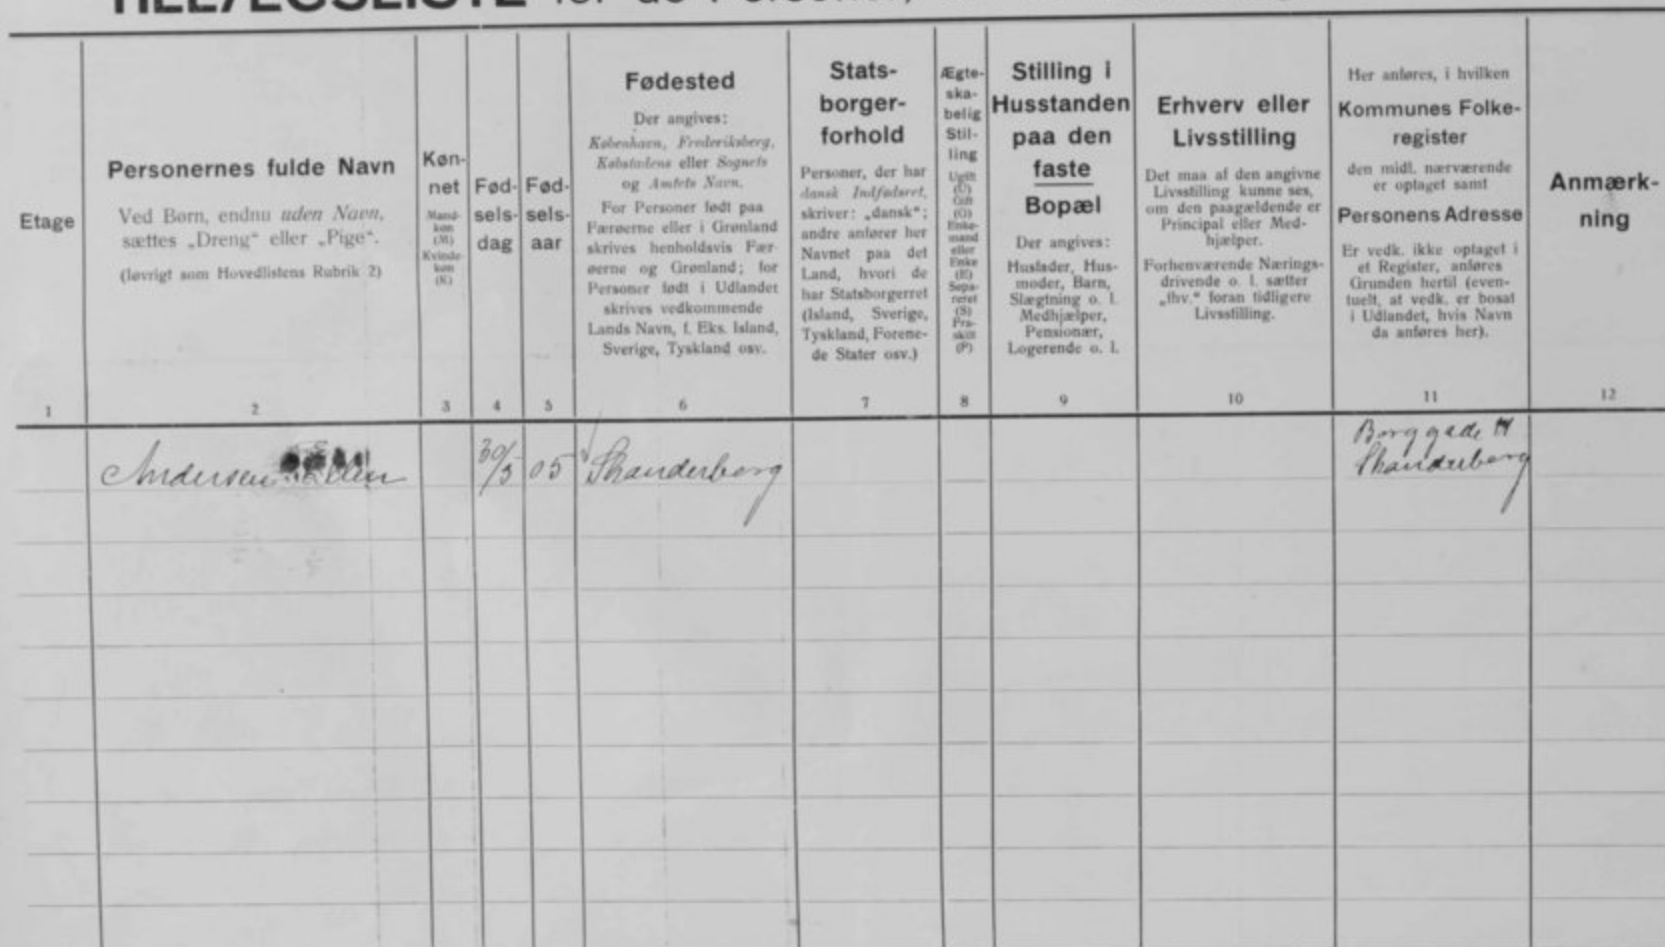 TILLÆGSLISTE for de Personer,
Etage
1
Personernes fulde Navn
Ved Børn, endnu uden Navn,
sættes „Dreng“ eller „Pige“.
(Iøvrigt som Hovedlistens Rubrik 2)
2
Køn-
net
Mand-
køn
(M)
Kvinde-
køn
(K)
3
Fød-
sels-
dag
4
Fød-
sels-
aar
5
Fødested
Der angives:
København, Frederiksberg,
Købstadens eller Sognets
og Amtets Navn.
For Personer født paa
Færøerne eller i Grønland
skrives henholdsvis Fær-
øerne og Grønland; for
Personer født i Udlandet
skrives vedkommende
Lands Navn, f. Eks. Island,
Sverige, Tyskland osv.
6
Stats-
borger-
forhold
Personer, der har
dansk Indfødsret,
skriver: „dansk“;
andre anfører her
Navnet paa det
Land, hvori de
har Statsborgerret
(Island, Sverige,
Tyskland, Forene-
de Stater osv.)
7
Ægte-
ska-
belig
Stil-
ling
Ugift
(U)
Gift
(G)
Enke-
mand
eller
Enke
(E)
Sepa-
reret
(S)
Fra-
skilt
(F)
8
Stilling i
Husstanden
paa den
faste
Bopæl
Der angives:
Husfader, Hus-
moder, Barn,
Slægtning o. l.
Medhjælper,
Pensionær,
Logerende o. l.
9
Erhverv eller
Livsstilling
Det maa af den angivne
Livsstilling kunne ses,
om den paagældende er
Principal eller Med-
hjælper.
Forhenværende Nærings-
drivende o. l. sætter
„fhv.“ foran tidligere
Livsstilling.
10
Her anføres, i hvilken
Kommunes Folke-
register
den midl. nærværende
er optaget samt
Personens Adresse
Er vedk. ikke optaget i
et Register, anføres
Grunden hertil (even-
tuelt, at vedk. er bosat
i Udlandet, hvis Navn
da anføres her).
11
Anmærk-
ning
12
Andersen Ellen
30/5
05
Skanderborg
Borggade
Skanderborg